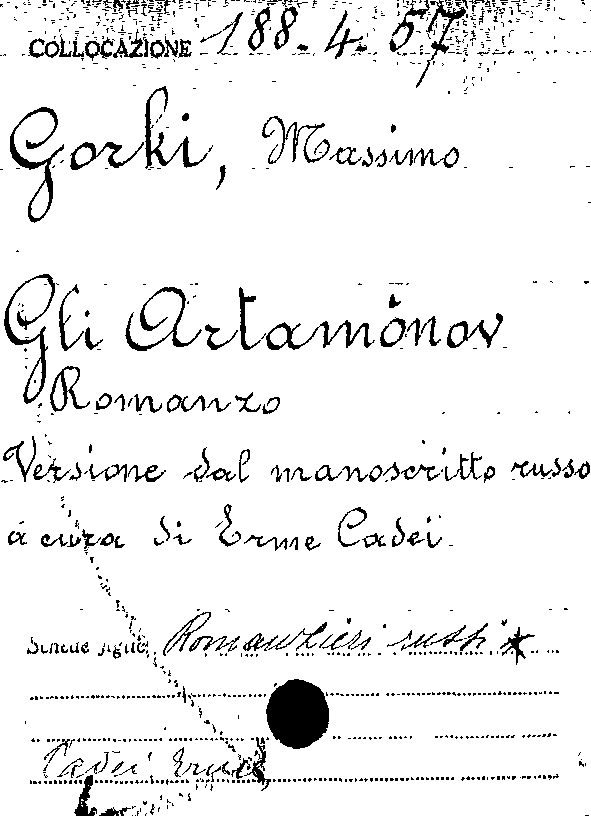 COLLOCAZIONE 188.4.57
Gorki, Massimo
Gli Artamònov
Romanzo
Versione dal manoscritto russo
a cura di Erme Cadei.
Schede figlie Romanzieri russi *
Cadei Erme